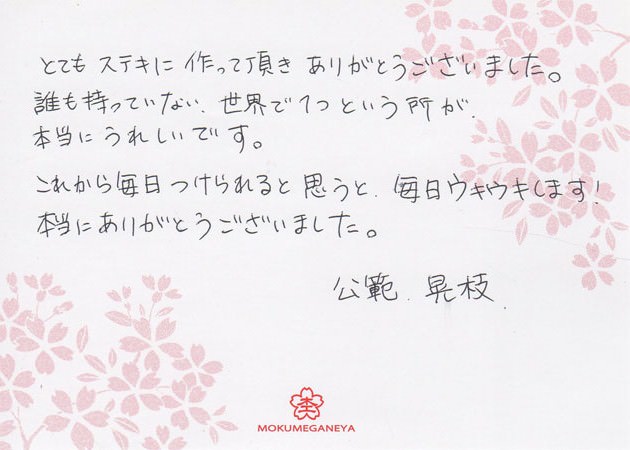 とても ステキに 作って頂き ありがとうございました。
誰も持っていない、世界で1つ という 所が、
本当に うれしいです。
これから毎日 つけられると 思うと、毎日ウキウキします!
本当にありがとうございました。
公範、晃枝、
MOKUMEGANEYA